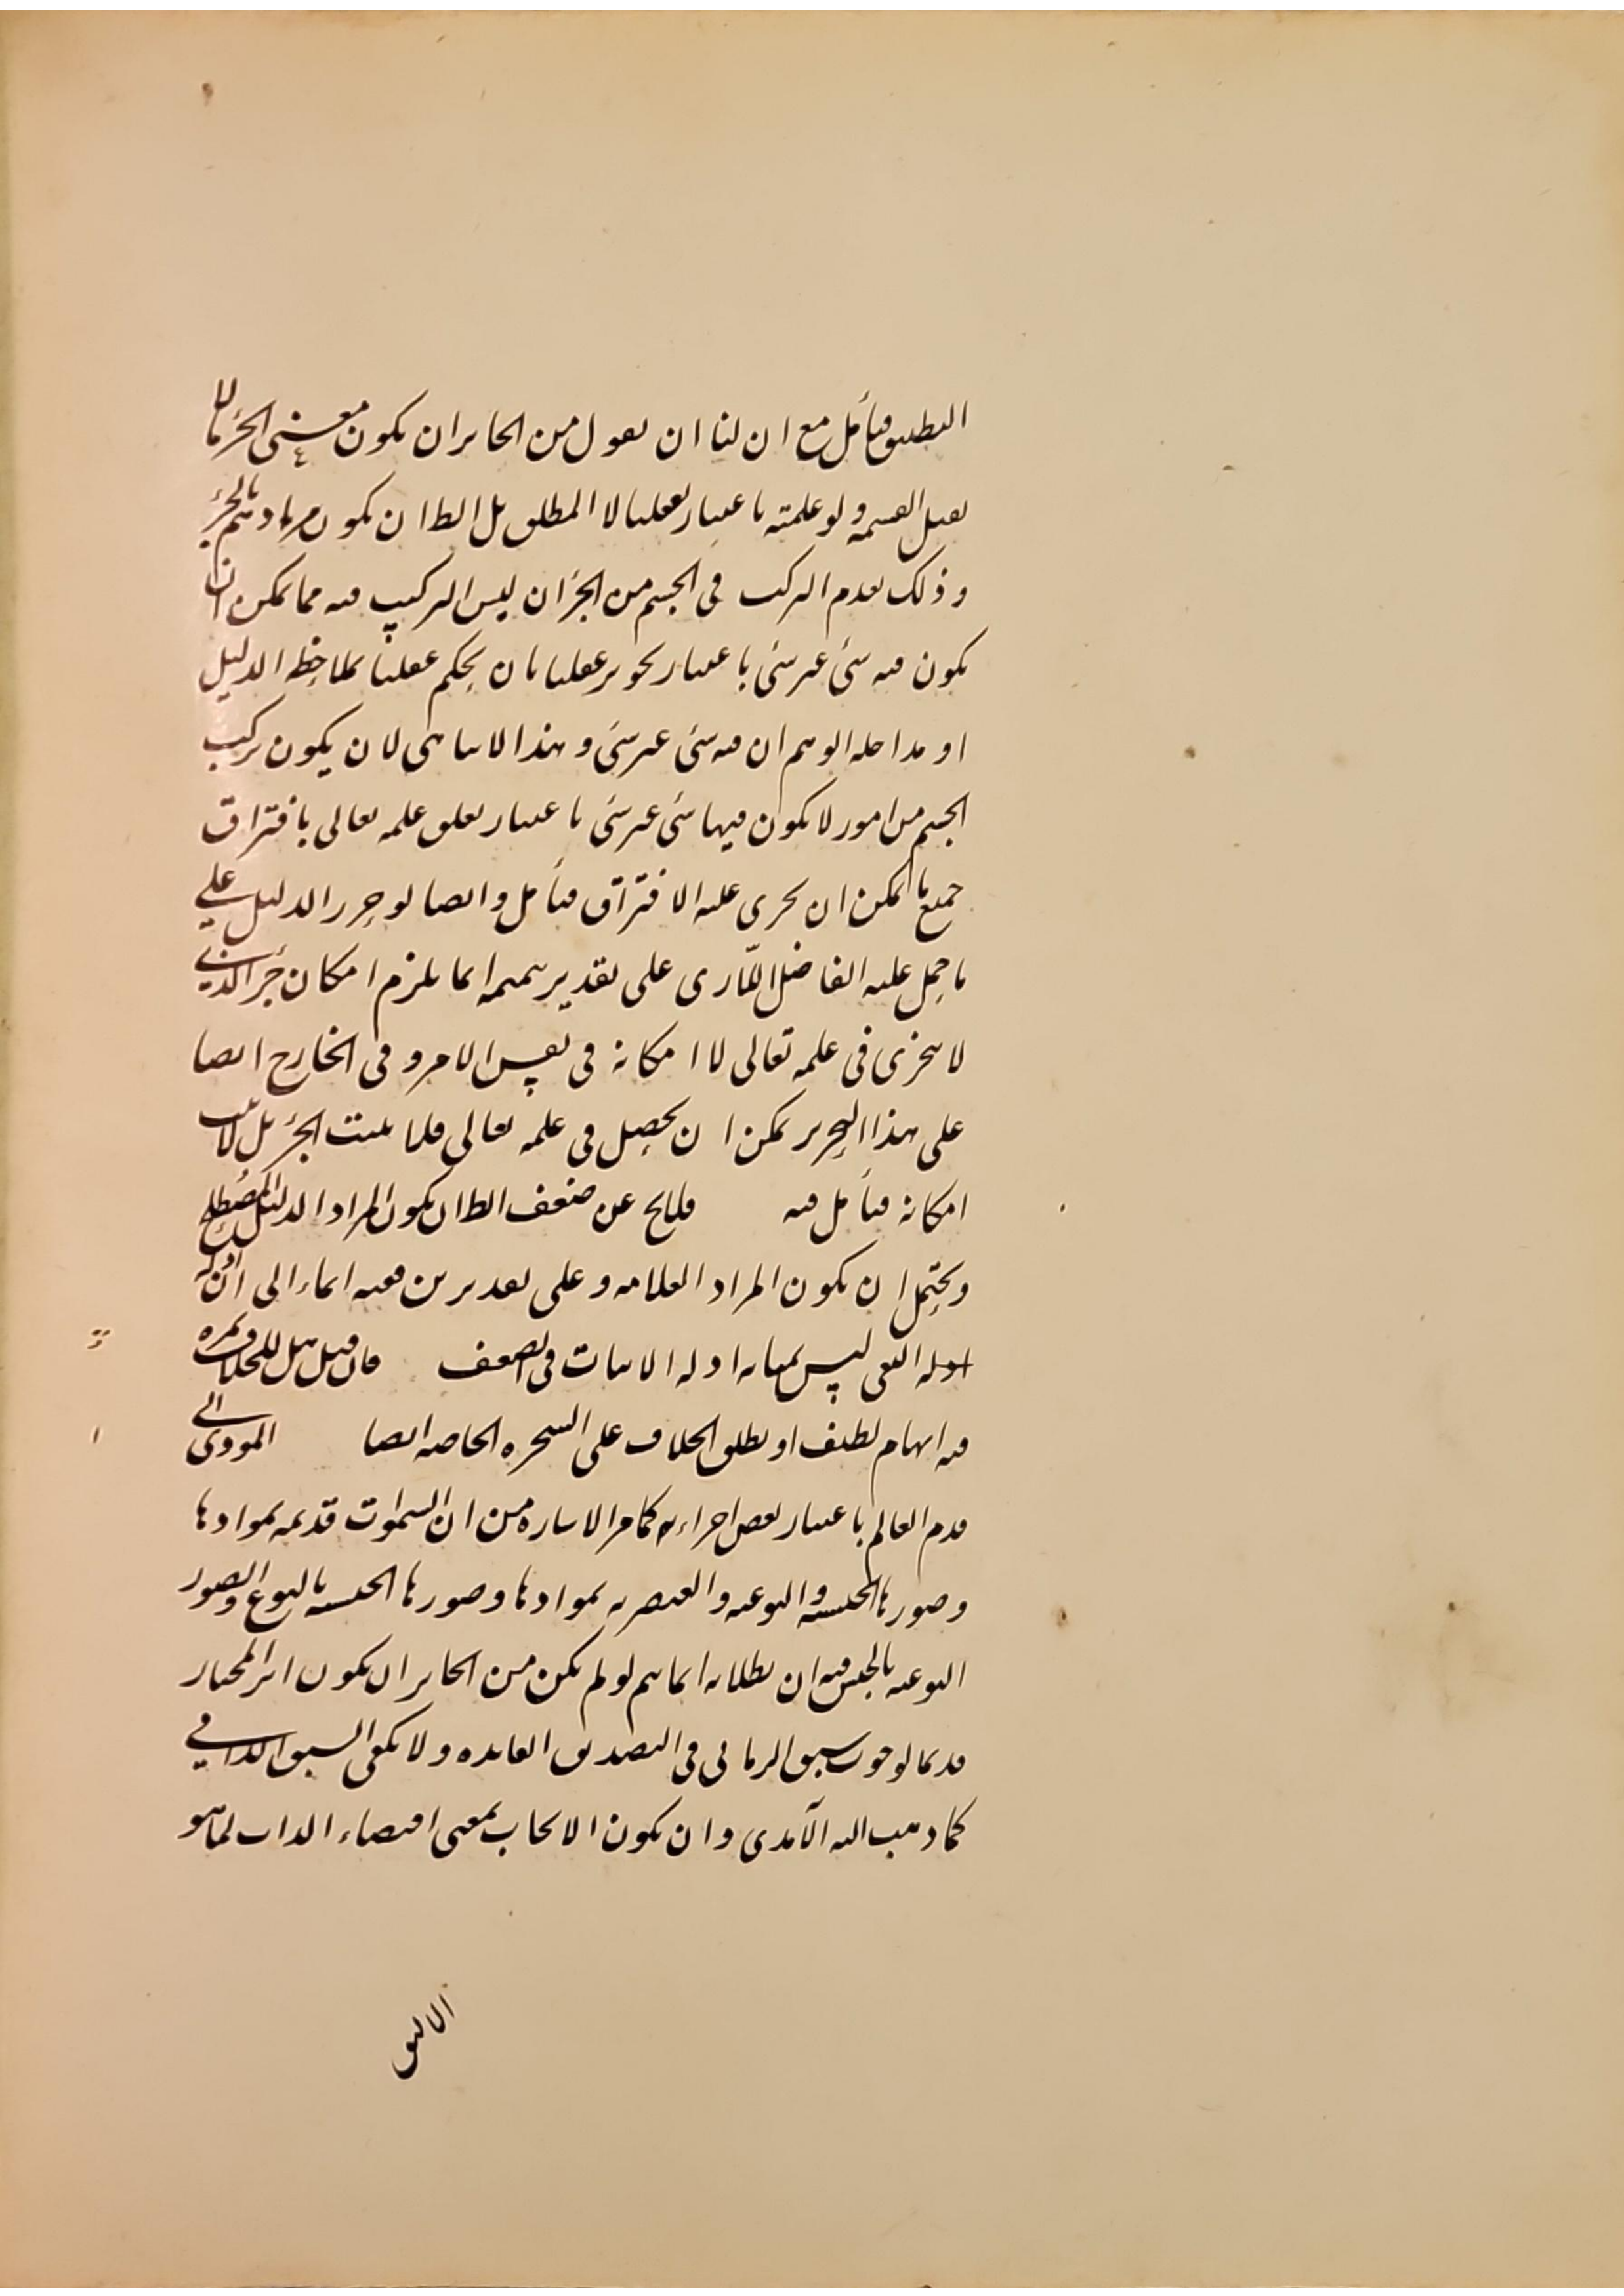 التطبيق فتأمل مع ان لنا ان نقول من الجائز ان يكون معنى الجزء ما لا
يقبل القسمة ولو علمته باعتبار تعقلنا لا المطلق بل الظ ان يكون مرادهم بالجزء
وذلك بعدم التركب في الجسم من الجزء ان ليس التركيب فيه مما يمكن ان
يكون فيه شئ غير شئ باعتبار تجويز عقلنا بان يحكم عقلنا بملاحظة الدليل
او مداخلة الوهم ان فيه شئ غير شئ وهذا لا ينافي لان يكون تركب
الجسم من امور لا يكون فيها شئ غير شئ باعتبار تعلق علمه تعالى بافتراق
جميع ما امكن ان يجرى عليه الافتراق فتأمل وايضا لو حرر الدليل على
ما حمل عليه الفاضل اللارى على تقدير تتميمه انما يلزم امكان جزء الذى
لا يتجزى في علمه تعالى لا امكانه في نفس الامر وفي الخارج ايضا
على هذا التحرير يمكن ان يحصل في علمه تعالى فلما يثبت الجزء بل لا يثبت
امكانه فتأمل فيه فلا يخ عن ضعف الظ ان يكون المراد الدليل المصطلح
ويحتمل ان يكون المراد العلامة وعلى تقديرين ففيه ايماء الى ان ادلة
ادلة النفي ليس بمثابة ادلة الاثبات في الضعف فان قيل هل للخلاف ثمرة
فيه ايهام لطيف او يطلق الخلاف على الشجرة الخاصة ايضا المودى الى
قدم العالم باعتبار بعض اجزاءه كما مر الاشارة من ان السموات قديمة بموادها
وصورها الجسمية والنوعية والعنصرية بموادها وصورها الجسمية بالنوع والصور
النوعية بالجنس فيه ان بطلانه انما يتم لو لم يكن من الجائز ان يكون اثر المختار
قديما لوجوب سبق الزمانى في التصديق الفائدة ولا يكفى السبق الذاتي
كما ذهب اليه الآمدى وان يكون الايجاب بمعنى اقتضاء الذات لما هو
الاليق